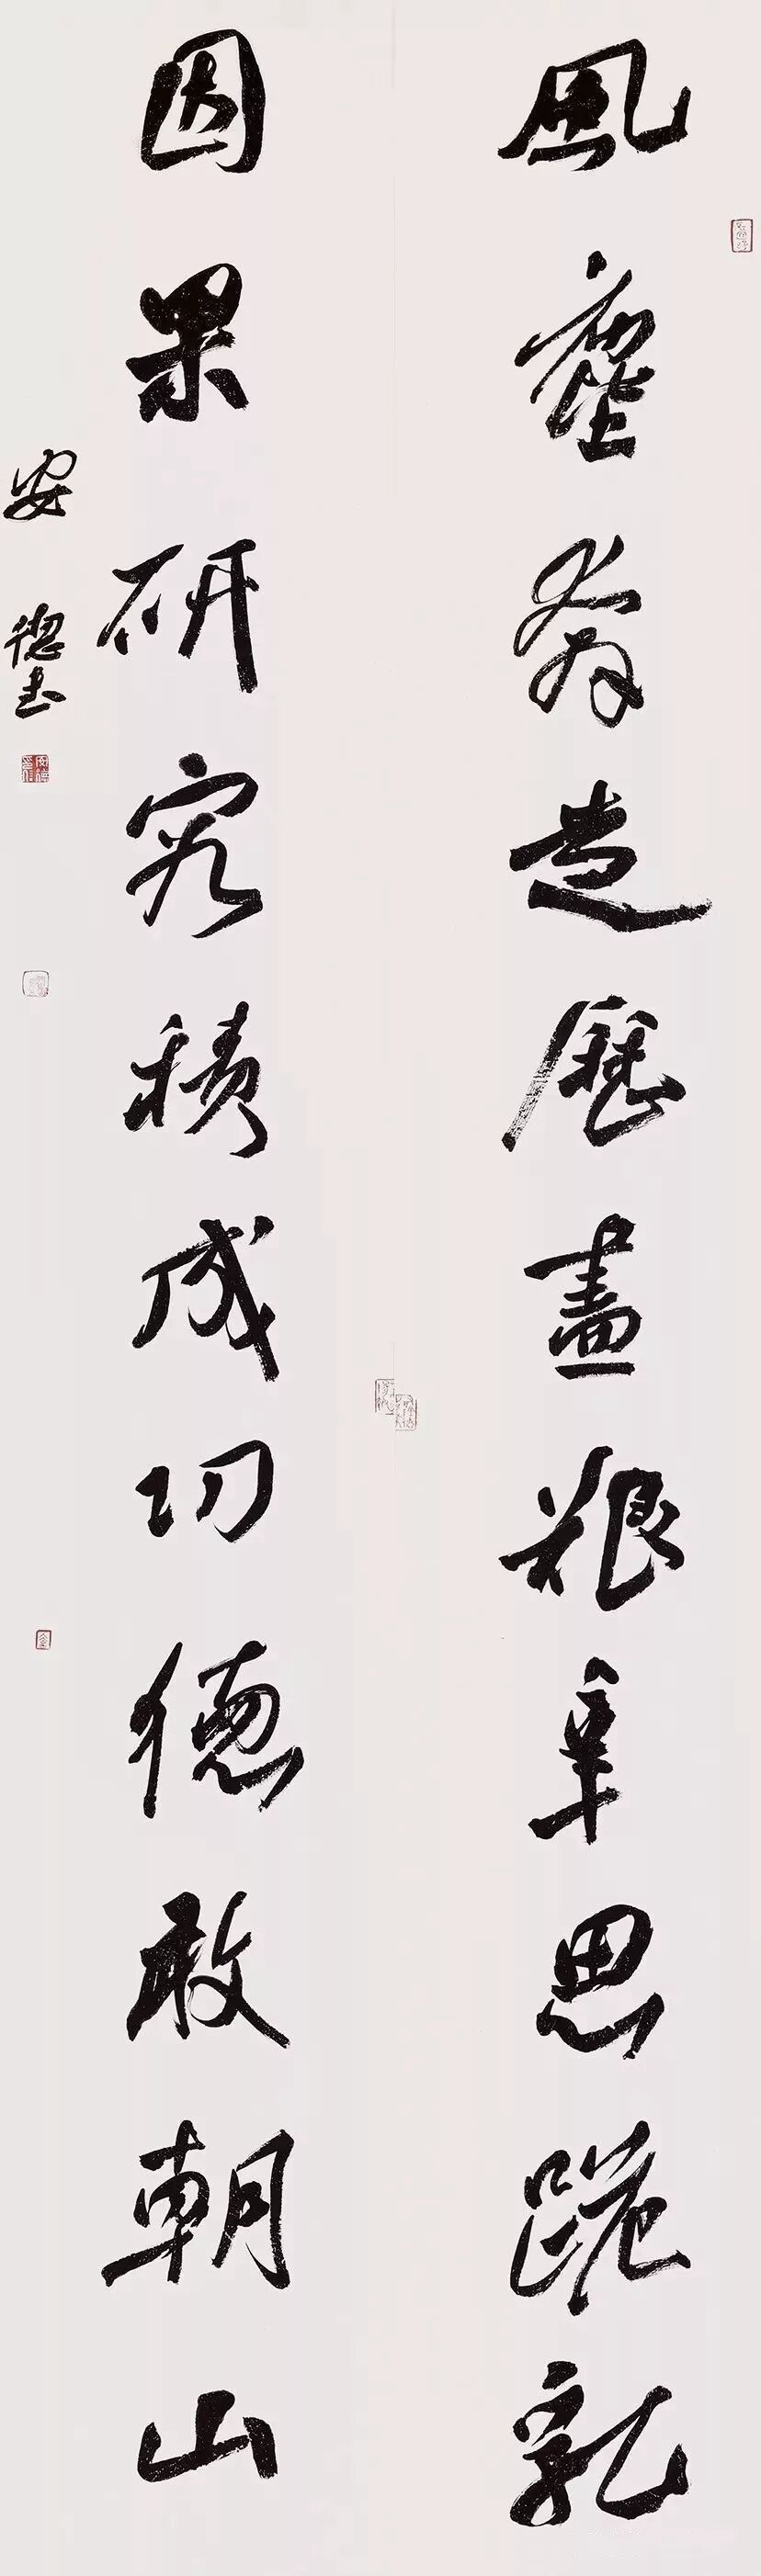 風塵奔走歷盡艱辛思跪乳
因果研究積成功德敢朝山
安德書